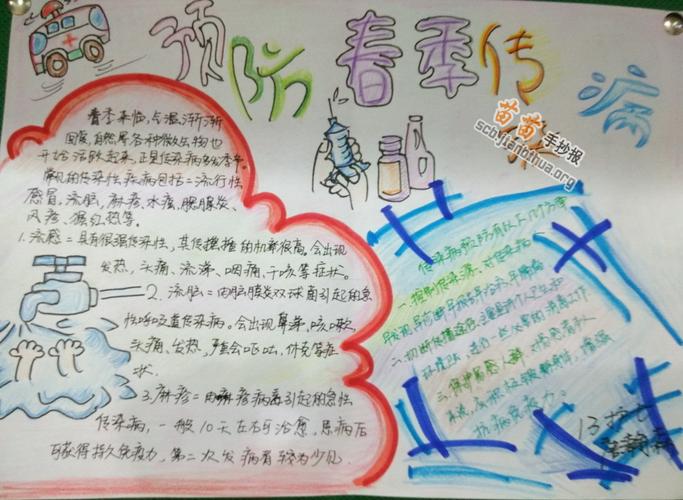 预防春季传 病
苗苗手抄报
scbyjianbihua.org
春季来临,气温渐渐
回暖,自然界各种微生物也
开始活跃起来,正是传染病多发季节。
常见的传染性疾病包括:流行性
感冒、流脑、麻疹、水痘、腮腺炎、
风疹、猩红热等。
1.流感:具有很强传染性,其传播 的机率很高。会出现
发热,头痛、流涕、咽痛、干咳等症状。
2.流脑:由脑膜炎双球菌引起的急
性呼吸道传染病。会出现鼻涕,咳嗽,
头痛、发热,严重会呕吐,休克等症
状.
3.麻疹:由麻疹病毒引起的急性
传染病,一般10天左右可治愈,患病后
可获得持久免疫力,第二次发病者较为少见.
传染病预防有以下几个方面
一.控制传染源,对传染病
二.切断传播途径 个人卫生和
环境卫 进行一些必要的消毒工作
三.保护易感人群
抗病免疫力。
13护七